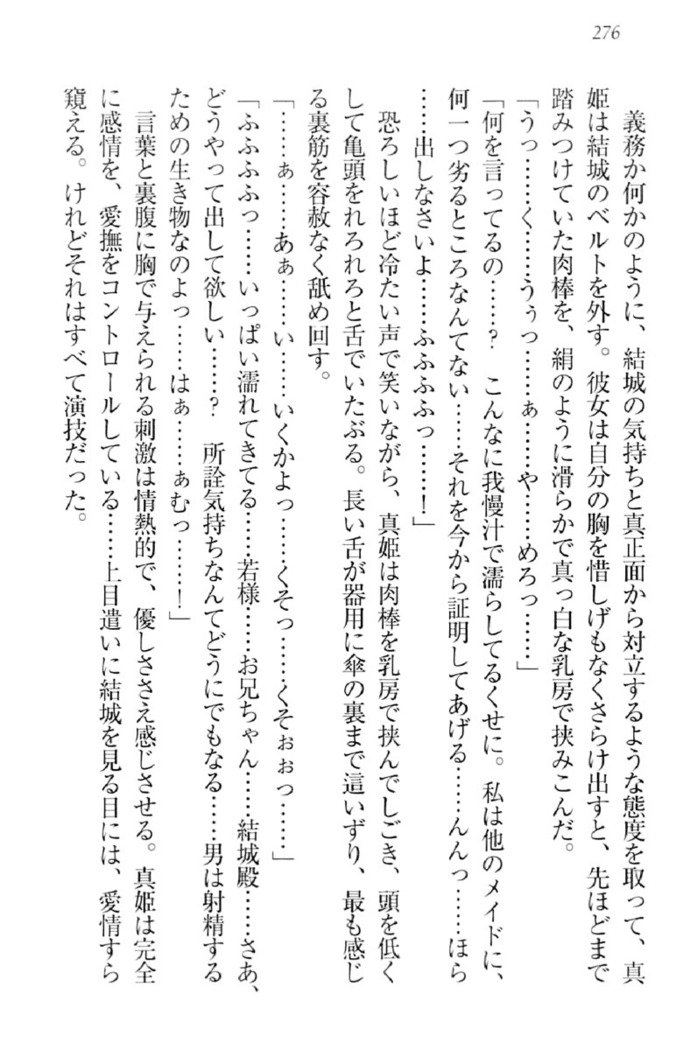 276
義務か何かのように、結城の気持ちと真正面から対立するような態度を取って、真
姫は結城のベルトを外す。彼女は自分の胸を惜しげもなくさらけ出すと、先ほどまで
踏みつけていた肉棒を、絹のように滑らかで真っ白な乳房で挟みこんだ。
「うっ……く……うぅっ……ぁ……や……めろっ……」
「何を言ってるの……？　こんなに我慢汁で濡らしてるくせに。私は他のメイドに、
何一つ劣るところなんてない……それを今から証明してあげる……んんっ……ほら
……出しなさいよ……ふふふふっ……！」
恐ろしいほど冷たい声で笑いながら、真姫は肉棒を乳房で挟んでしごき、頭を低く
して亀頭をれろれろと舌でいたぶる。長い舌が器用に傘の裏まで這いずり、最も感じ
る裏筋を容赦なく舐め回す。
「……ぁ……あぁ……い……いくかよっ……くそっ……くそぉぉっ……」
「ふふふふっ……いっぱい濡れてきてる……若様……お兄ちゃん……結城殿……さあ、
どうやって出して欲しい……？　所詮気持ちなんてどうにでもなる……男は射精する
ための生き物なのよっ……はぁ……ぁむっ……！」
言葉と裏腹に胸で与えられる刺激は情熱的で、優しささえ感じさせる。真姫は完全
に感情を、愛撫をコントロールしている……上目遣いに結城を見る目には、愛情すら
窺える。けれどそれはすべて演技だった。